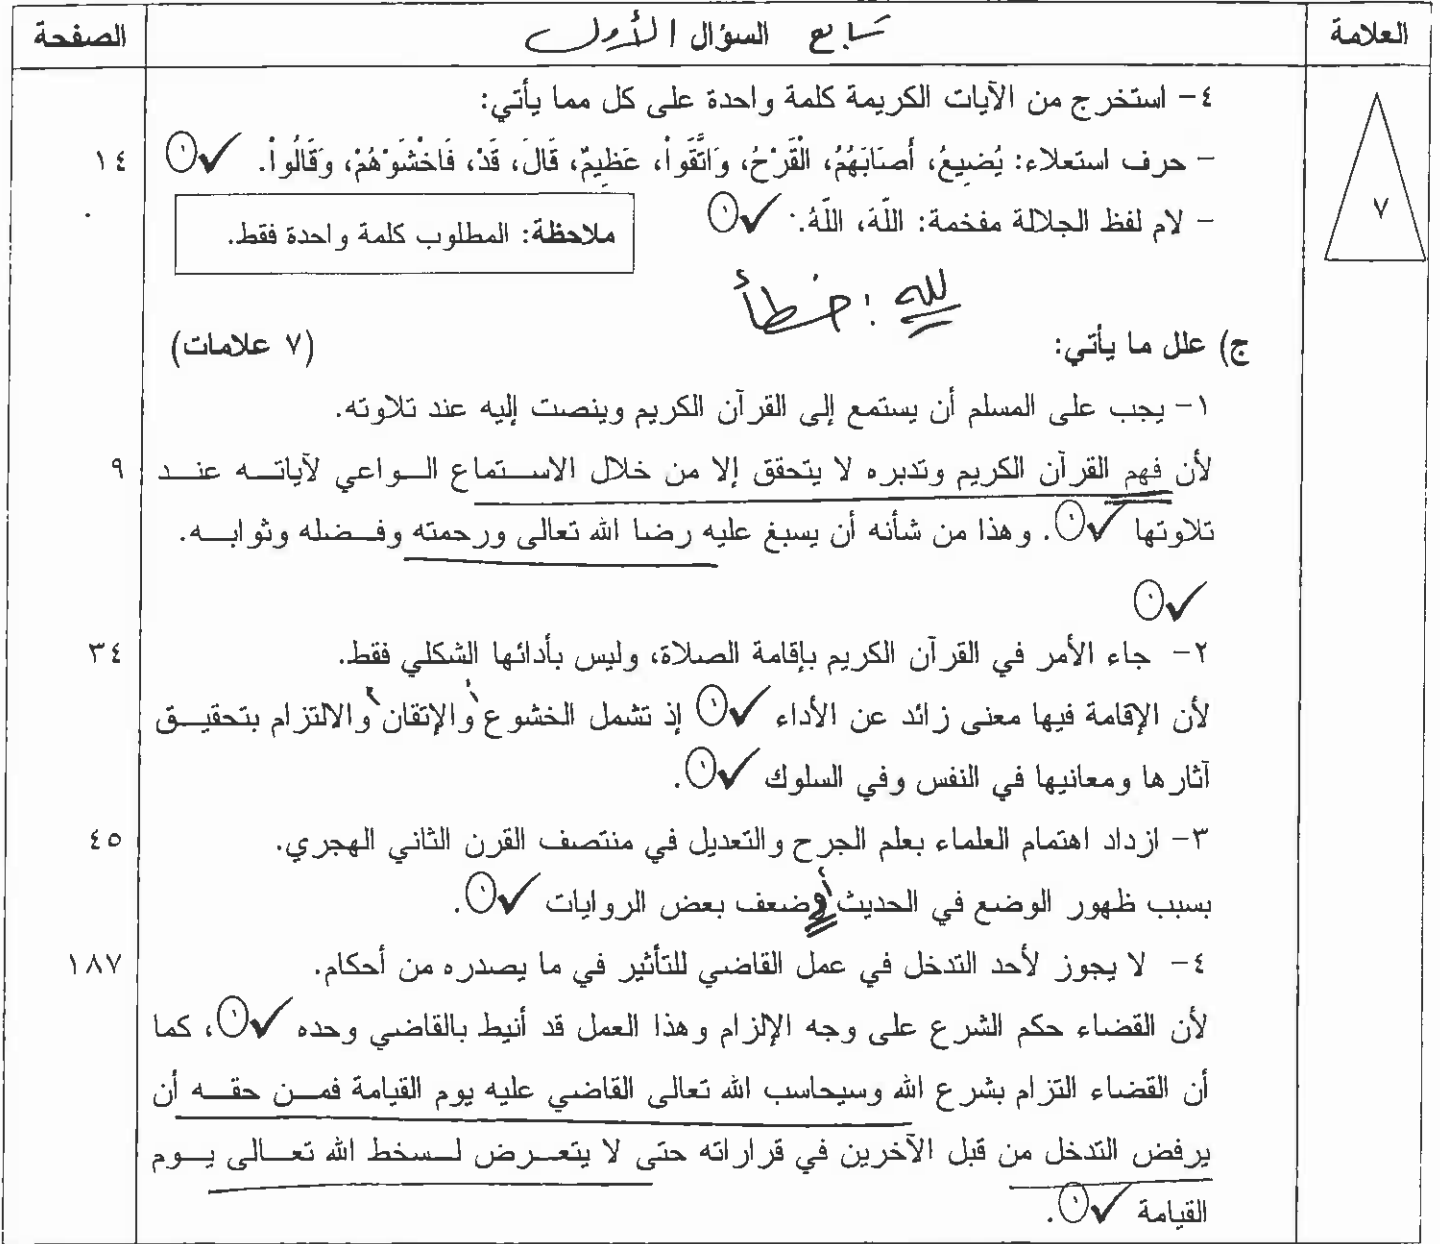 العلامة تابع السؤال الأول الصفحة
٤- استخرج من الآيات الكريمة كلمة واحدة على كل مما يأتي:
- حرف استعلاء: يُضِيعُ، أَصَابَهُمُ، الْقَرْحُ، وَاتَّقَواْ، عَظِيمٌ، قَالَ، قَدْ، فَاخْشَوْهُمْ، وَقَالُواْ. ✓ ١ ١٤
- لام لفظ الجلالة مفخمة: اللَّهَ، اللَّهُ. ✓ ١
ملاحظة: المطلوب كلمة واحدة فقط.
٧
لله : خطأ
ج) علل ما يأتي: (٧ علامات)
١- يجب على المسلم أن يستمع إلى القرآن الكريم وينصت إليه عند تلاوته.
لأن فهم القرآن الكريم وتدبره لا يتحقق إلا من خلال الاستماع الواعي لآياته عند ٩
تلاوتها ✓ ١. وهذا من شأنه أن يسبغ عليه رضا الله تعالى ورحمته وفضله وثوابه.
✓ ١
٢- جاء الأمر في القرآن الكريم بإقامة الصلاة، وليس بأدائها الشكلي فقط. ٣٤
لأن الإقامة فيها معنى زائد عن الأداء ✓ ١ إذ تشمل الخشوع أو الإتقان أو الالتزام بتحقيق
آثارها ومعانيها في النفس وفي السلوك ✓ ١.
٣- ازداد اهتمام العلماء بعلم الجرح والتعديل في منتصف القرن الثاني الهجري. ٤٥
بسبب ظهور الوضع في الحديث أو ضعف بعض الروايات ✓ ١.
٤- لا يجوز لأحد التدخل في عمل القاضي للتأثير في ما يصدره من أحكام. ١٨٧
لأن القضاء حكم الشرع على وجه الإلزام وهذا العمل قد أنيط بالقاضي وحده ✓ ١، كما
أن القضاء التزام بشرع الله وسيحاسب الله تعالى القاضي عليه يوم القيامة فمن حقه أن
يرفض التدخل من قبل الآخرين في قراراته حتى لا يتعرض لسخط الله تعالى يوم
القيامة ✓ ١.